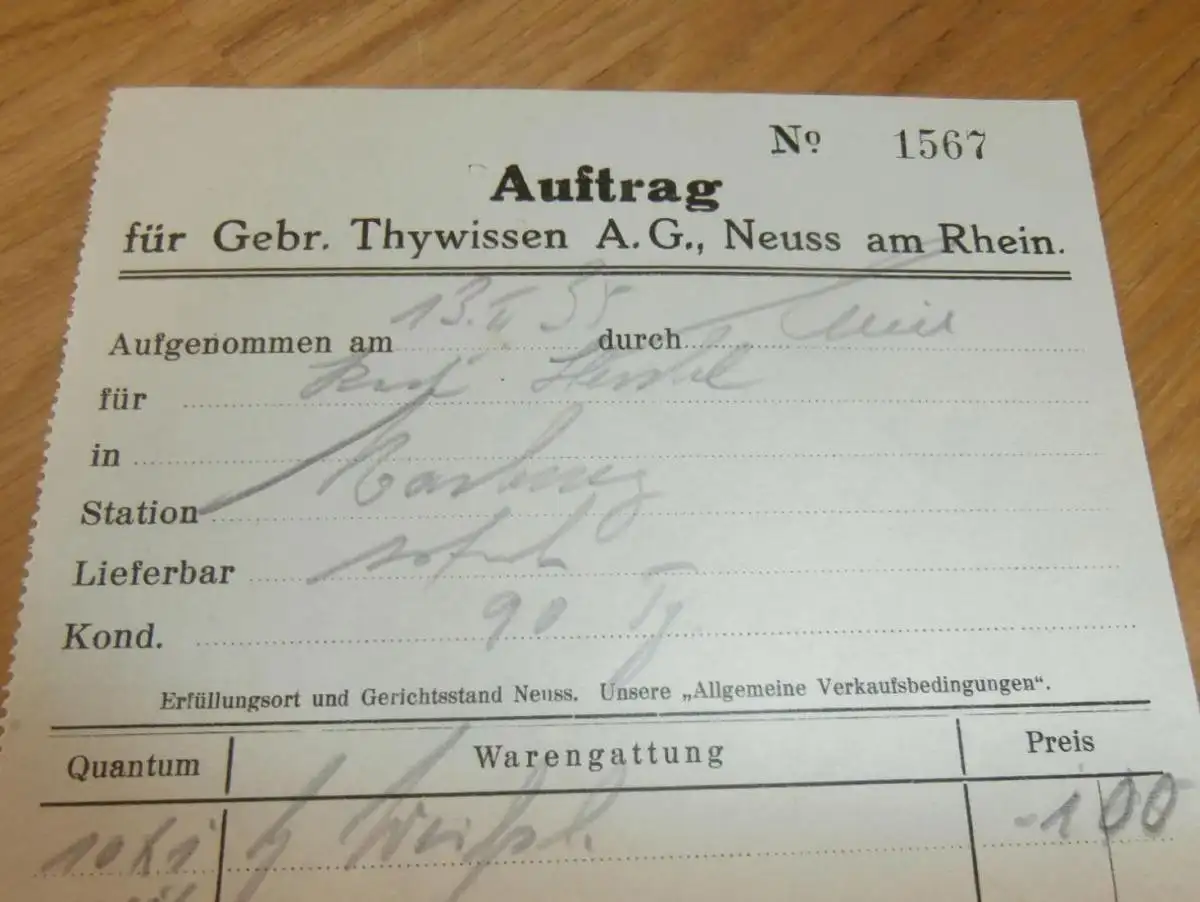 Nº 1567
Auftrag
für Gebr. Thywissen A.G., Neuss am Rhein.
Aufgenommen am 13. II 35 durch
für
in Marburg
Station
Lieferbar sofort
Kond. 90 Tg.
Erfüllungsort und Gerichtsstand Neuss. Unsere „Allgemeine Verkaufsbedingungen“.
Quantum Warengattung Preis
-100